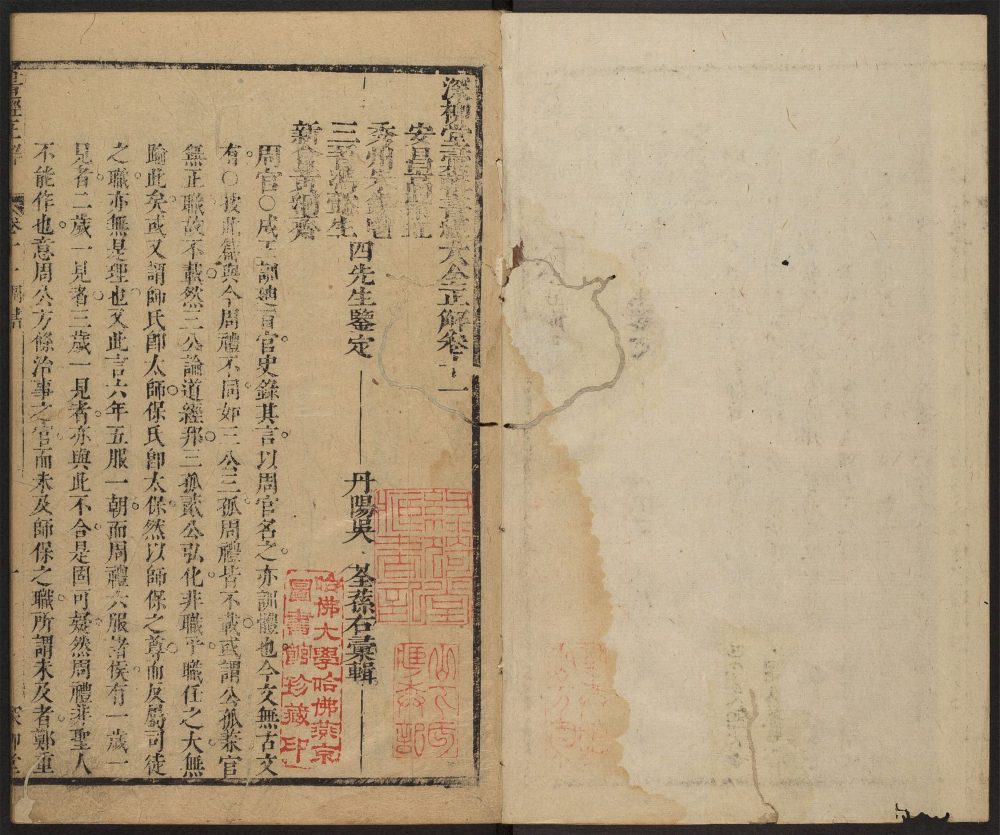 深柳堂彙輯書經大全正解卷十一
四先生鑒定
丹陽吳荃蓀右彙輯
周官○成王訓廸百官史錄其言以周官名之亦訓體也今文無古文
有○按此篇與今周禮不同如三公三孤周禮皆不載或謂公孤兼官
無正職故不載然三公論道經邦三孤貳公弘化非職乎職任之大無
踰此矣或又謂師氏卽太師保氏卽太保然以師保之尊而反屬司徒
之職亦無是理也又此言六年五服一朝而周禮六服諸侯有一歲一
見者二歲一見者三歲一見者亦與此不合是固可疑然周禮非聖人
不能作也意周公方條治事之官而未及師保之職所謂未及者鄭重
書經正解
卷十一 周誥
一
深柳堂
哈佛大學哈佛燕京
圖書館珍藏印